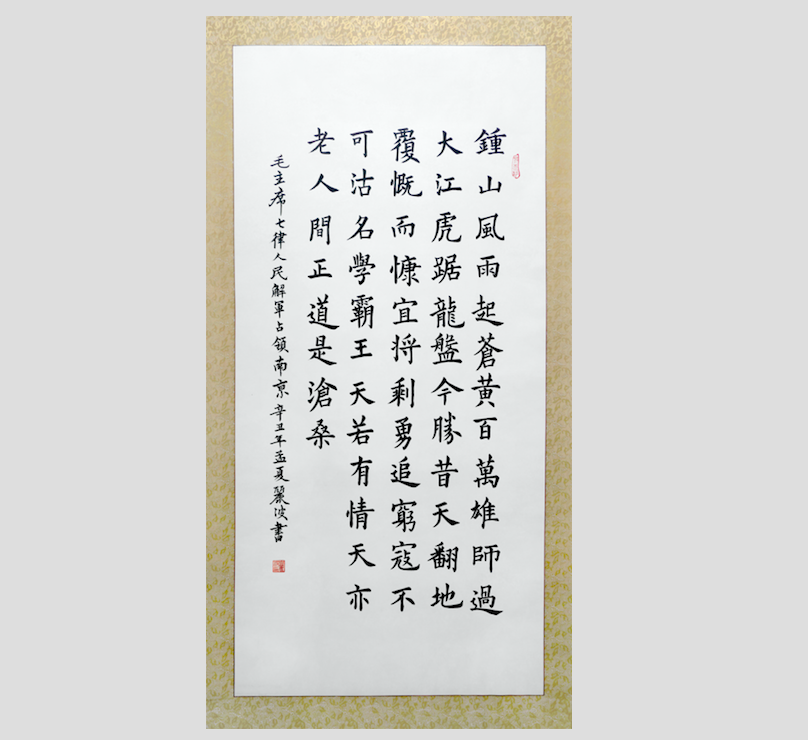 鍾山風雨起蒼黃百萬雄師過
大江虎踞龍盤今勝昔天翻地
覆慨而慷宜将剩勇追窮寇不
可沽名學霸王天若有情天亦
老人間正道是滄桑
毛主席七律人民解軍占領南京辛丑年孟夏麗波書